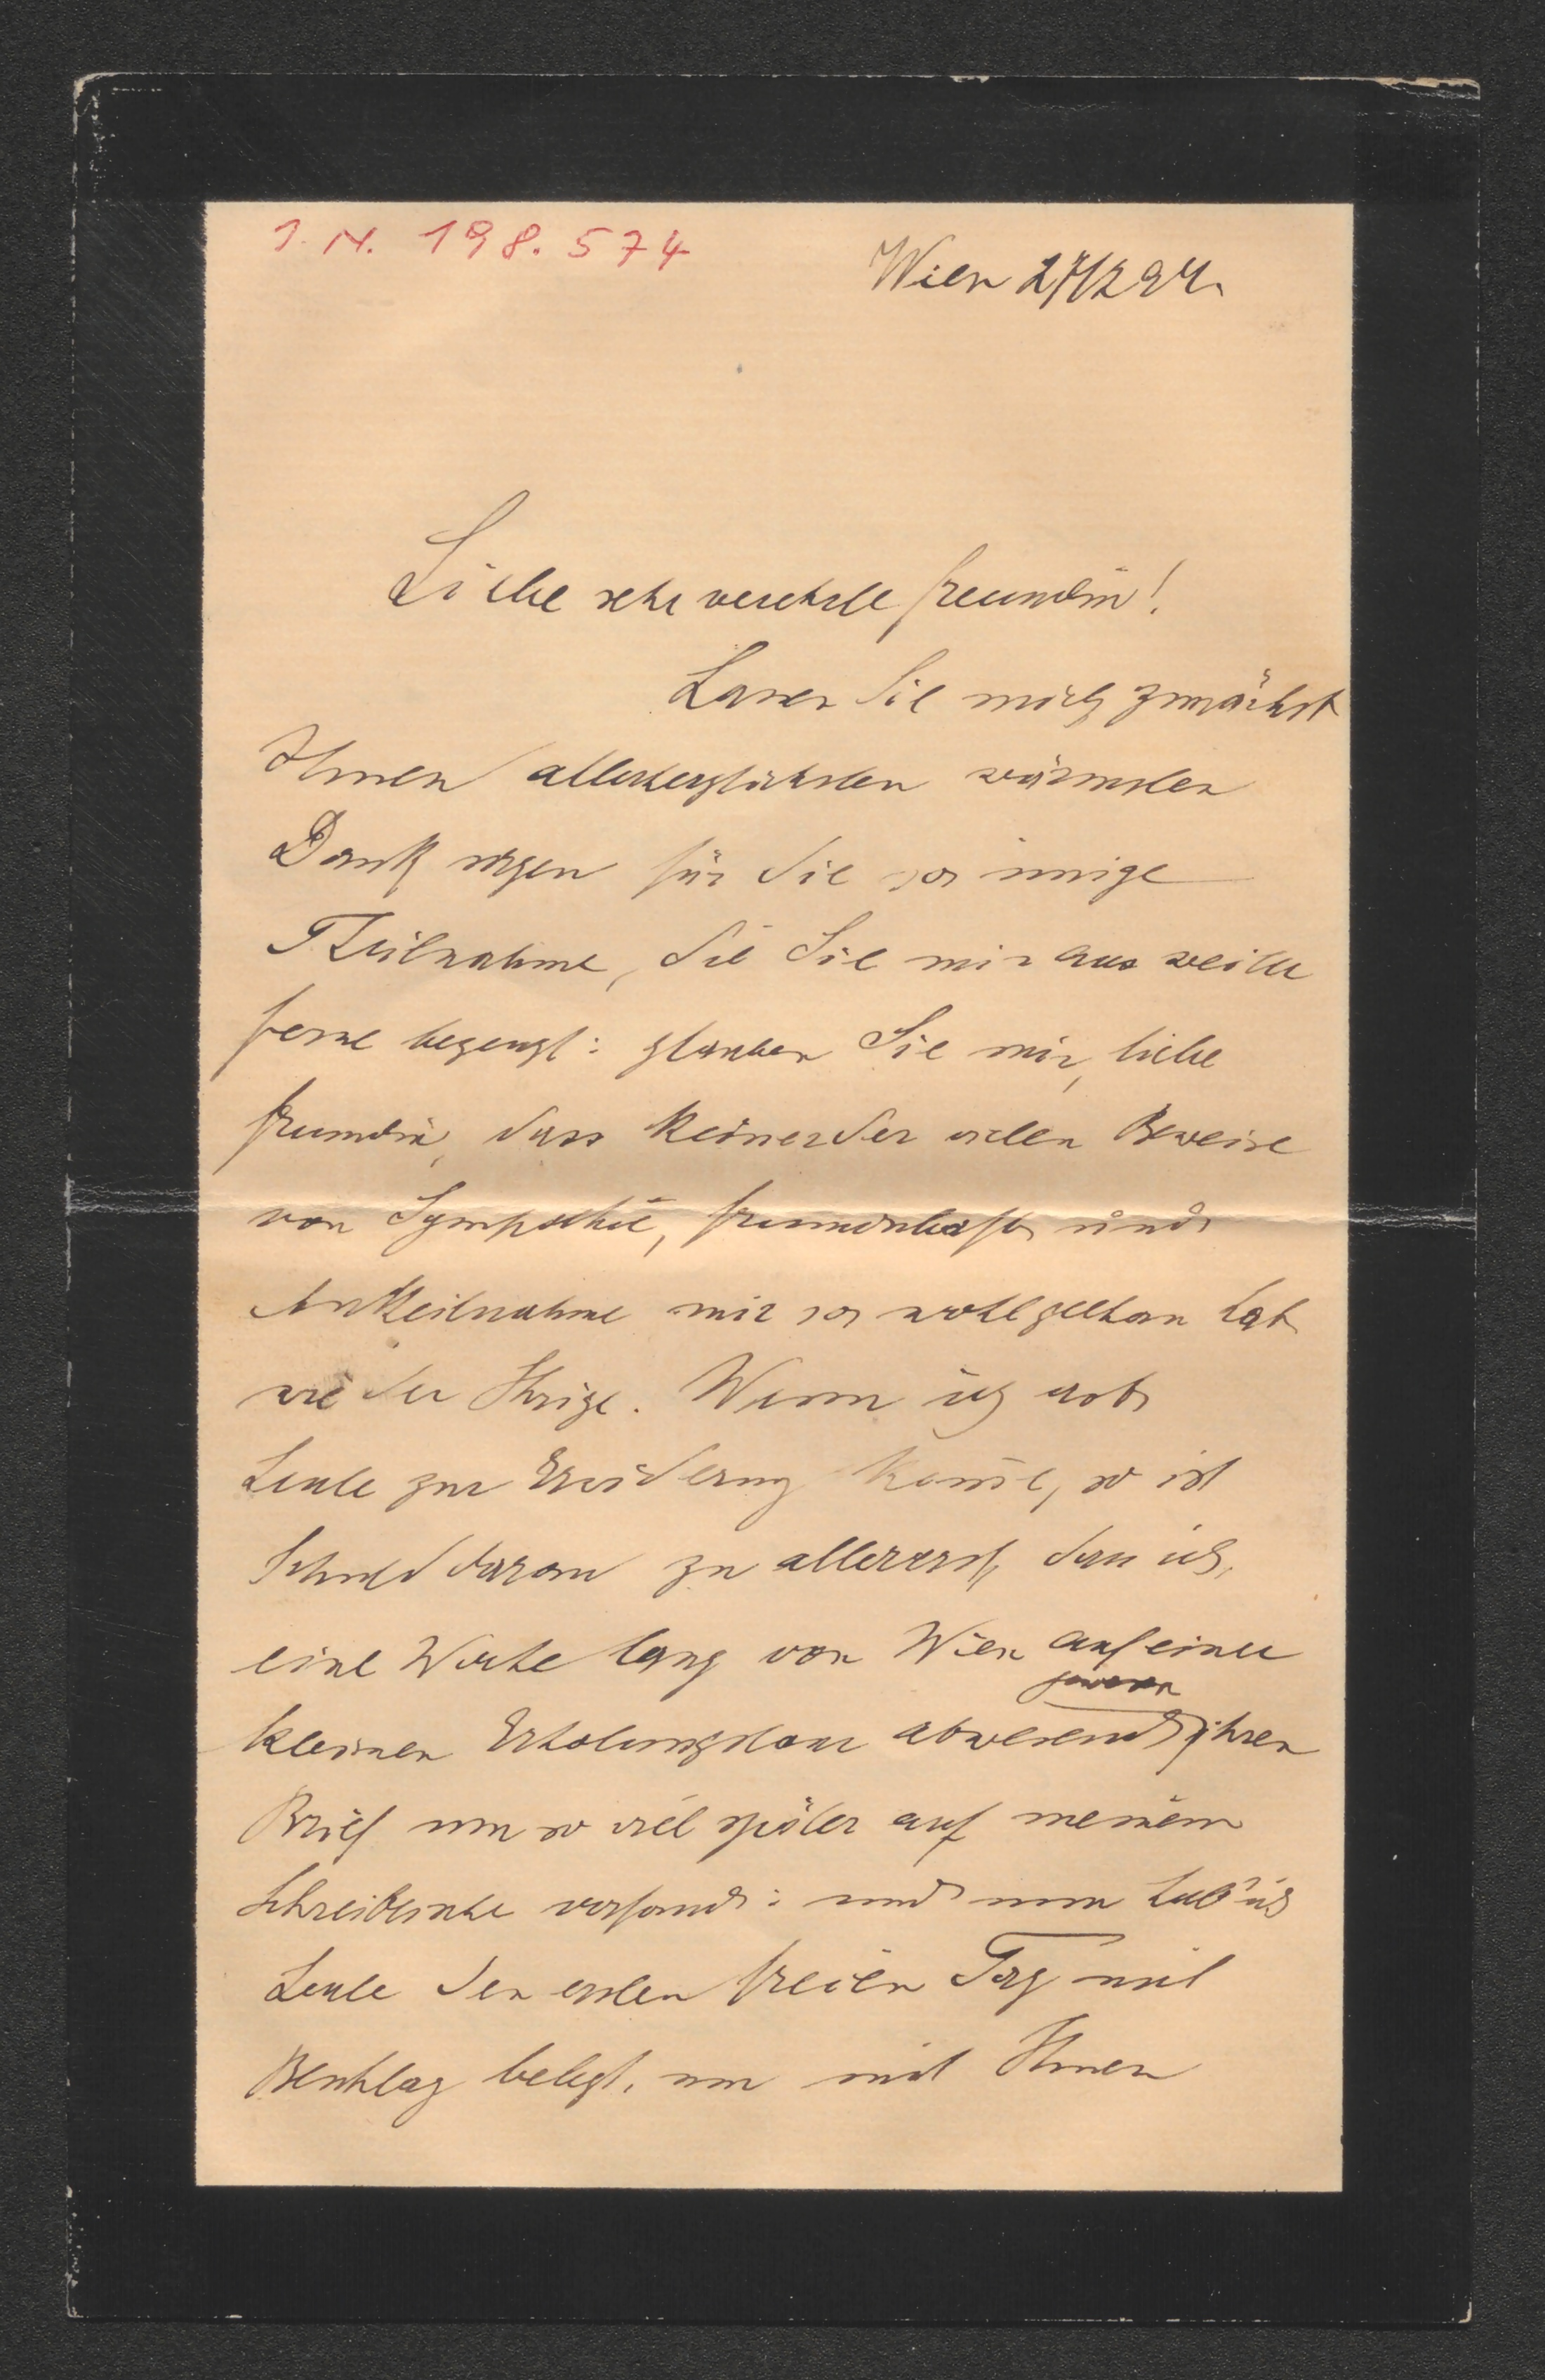 I. N. 198.574
Wien 27/2 94.
Liebe sehr verehrte Freundin!
Lassen Sie mich zunächst
Ihnen allerherzlichsten wärmsten
Dank sagen für die so innige
Theilnahme, die Sie mir aus weiter
Ferne bezeugt: glauben Sie mir, liebe
Freundin, dass keiner der vielen Beweise
von Sympathie, Freundschaft und
Antheilnahme mir so wohlgethan hat
wie der Ihrige. Wenn ich erst
heute zur Erwiderung komme, so ist
Schuld daran zu allererst, dass ich,
eine Woche lang von Wien auf einer
kleinen Erholungstour abwesend gewesen Ihren
Brief um so viel später auf meinem
Schreibtische vorfand: und nun hab' ich
heute den ersten freien Tag mit
Beschlag belegt, um mit Ihnen